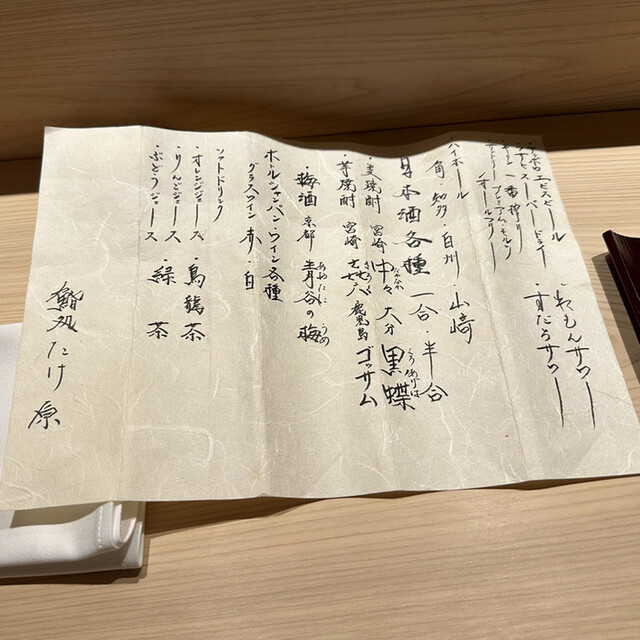 サッポロ エビスビール
アサヒ スーパードライ
キリン 一番搾り
サントリー プレミアム・モルツ
オールフリー
れもんサワー
すだちサワー
・ハイボール
角・知多・白州・山崎
日本酒各種 一合・半合
・麦焼酎 宮崎 中々 なかなか 大分 黒蝶 くろあげは
・芋焼酎 宮崎 㐂六 きろく 鹿児島 ゴッサム
・梅酒 京都 青谷の梅 あおたに うめ
ボトルシャンパン・ワイン各種
グラスワイン 赤・白
ソフトドリンク
・オレンジジュース ・烏龍茶
・りんごジュース ・緑茶
・ぶどうジュース
鮨 たけ原